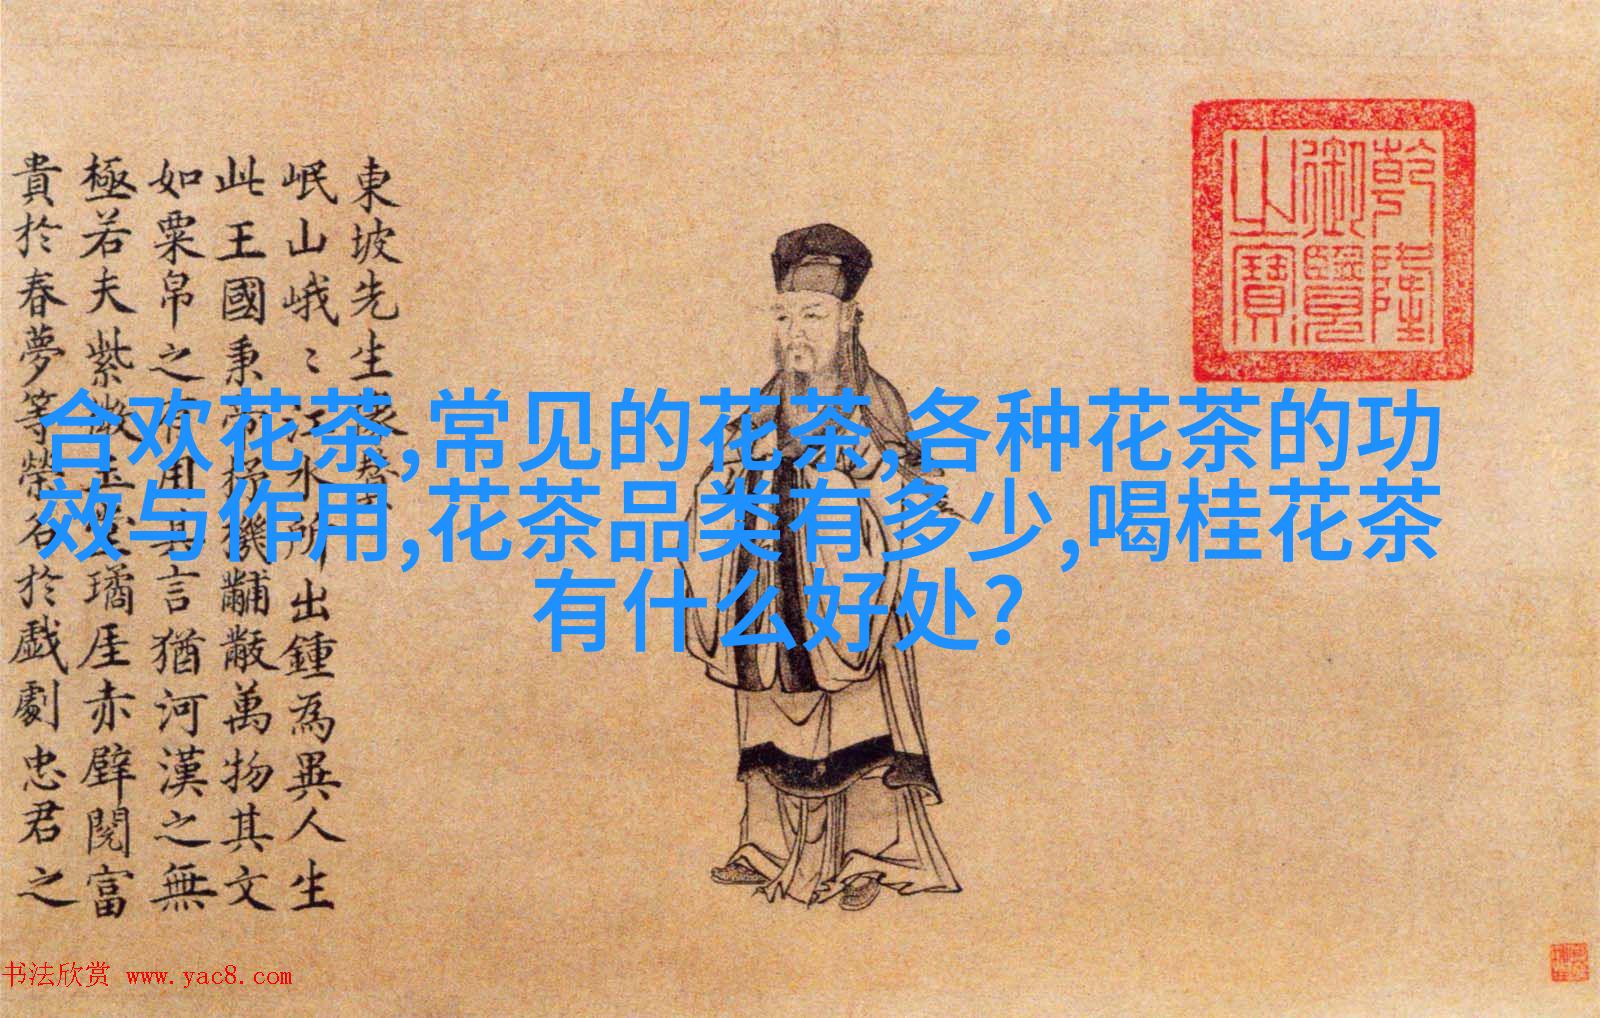 東坡先生
岷山峨〻江水所出鍾為異人生
此王國秉帝杼機黼黻萬物其文
如粟帛之有用其言猶河漢之無
極若夫紫微玉堂璚厓赤壁閱富
貴於春夢等榮名於戲劇忠君之
乾隆
御覽
之寶
合欢花茶,常见的花茶,各种花茶的功
效与作用,花茶品类有多少,喝桂花茶
有什么好处?
书法欣赏 www.yac8.com